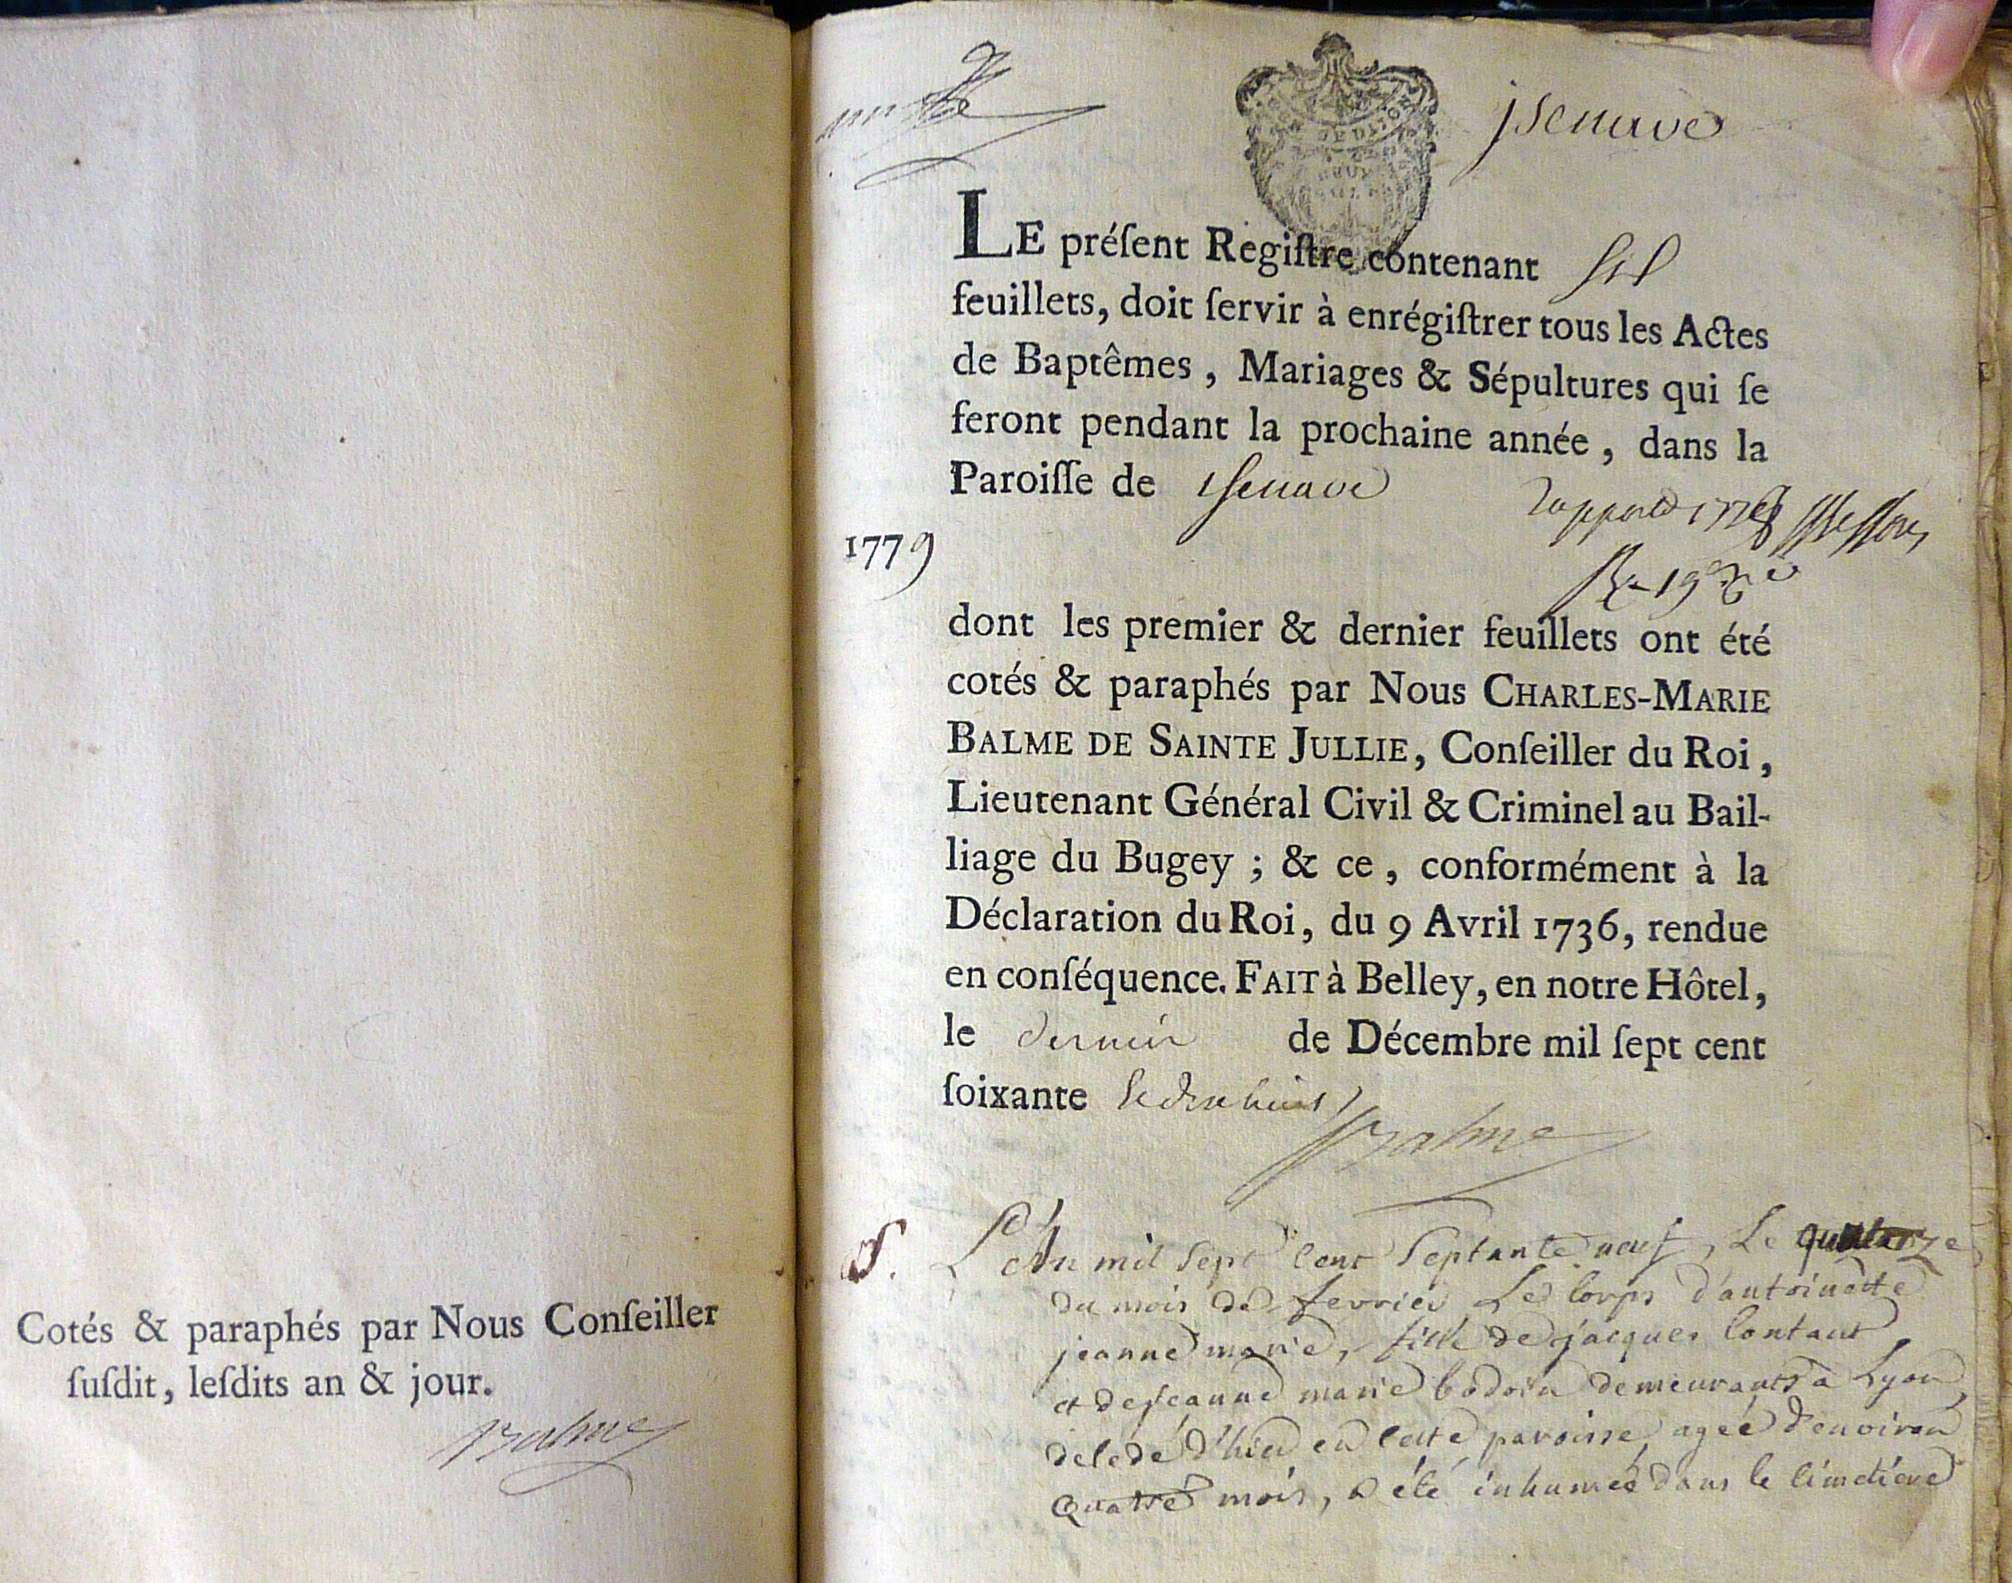 Cotés & paraphés par Nous Conſeiller
ſuſdit, leſdits an & jour.
Balme
jsenave
LE préſent Regiſtre contenant six
feuillets, doit ſervir à enrégiſtrer tous les Actes
de Baptêmes, Mariages & Sépultures qui ſe
feront pendant la prochaine année, dans la
Paroiſſe de isenave
1779
dont les premier & dernier feuillets ont été
cotés & paraphés par Nous CHARLES-MARIE
BALME DE SAINTE JULLIE, Conſeiller du Roi,
Lieutenant Général Civil & Criminel au Bail-
liage du Bugey; & ce, conformément à la
Déclaration du Roi, du 9 Avril 1736, rendue
en conſéquence. FAIT à Belley, en notre Hôtel,
le dernier de Décembre mil ſept cent
ſoixante
Balme
S. L'An mil sept cent septante neuf, Le
du mois de fevrier Le corps d'antoinette
jeanne marie, fille de jacques Contant
et de jeanne marie bodoin demeurants à Lyon,
décédé d'hier en cette paroisse, agée d'environ
quatre mois, a été inhumée dans le cimetiere